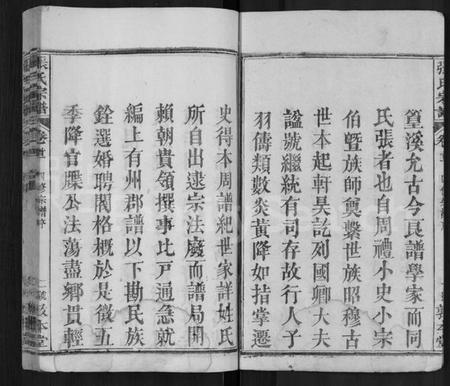 張氏宗譜 卷首
篁溪尤古今良譜學家而同
氏張者也自周禮小史小宗
伯暨族師奠繫世族昭穆古
世本起軒昊訖列國卿大夫
諡號繼統有司存故行人子
羽儔類數炎黃降如指掌遷
史得本周譜紀世家詳姓氏
所自出逮宗法廢而譜局開
賴朝貴領撰事比戸通急就
編上有州郡譜以下勘民族
銓選婚聘閥格概於是徵五
季降官牒公法蕩盡鄉貫輕
張氏宗譜 卷首 四修宗譜序